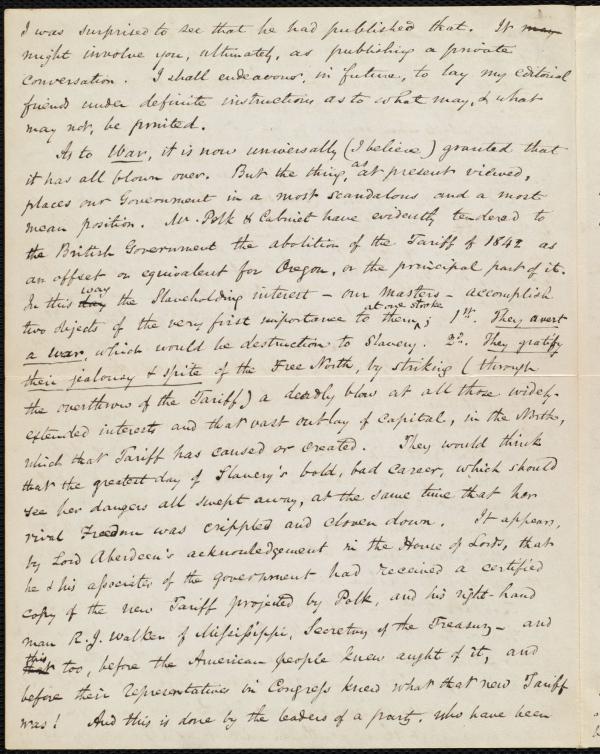 I was surprised to see that he had published that. It may
might involve you, ultimately, as publishing a private
conversation. I shall endeavour, in future, to lay my editorial
friends under definite instructions as to what may, & what
may not, be printed.
As to War, it is now universally (I believe) granted that
it has all blown over. But the thing, as at present viewed,
places our Government in a most scandalous and a most
mean position. Mr. Polk & Cabinet have evidently tendered to
the British Government the abolition of the Tariff of 1842 as
an offset or equivalent for Oregon, or the principal part of it.
In this way the Slaveholding interest – our masters – accomplish
two objects of the very first importance to them, at one stroke; 1st. They avert
a war, which would be destruction to Slavery. 2d. They gratify
their jealousy & spite of the Free North, by striking (through
the overthrow of the Tariff) a deadly blow at all those widely-
extended interests and that vast outlay of capital, in the North,
which that Tariff has caused or created. They would think
that the greatest day of Slavery's bold, bad career, which should
see her dangers all swept away, at the same time that her
rival Freedom was crippled and cloven down. It appears,
by Lord Aberdeen's acknowledgement in the House of Lords, that
he & his associates of the government had received a certified
copy of the new Tariff projected by Polk, and his right-hand
man R. J. Walker of Mississippi, Secretary of the Treasury – and
this too, before the American people knew aught of it, and
before their Representatives in Congress knew what that new Tariff
was! And this is done by the leaders of a party, who have been